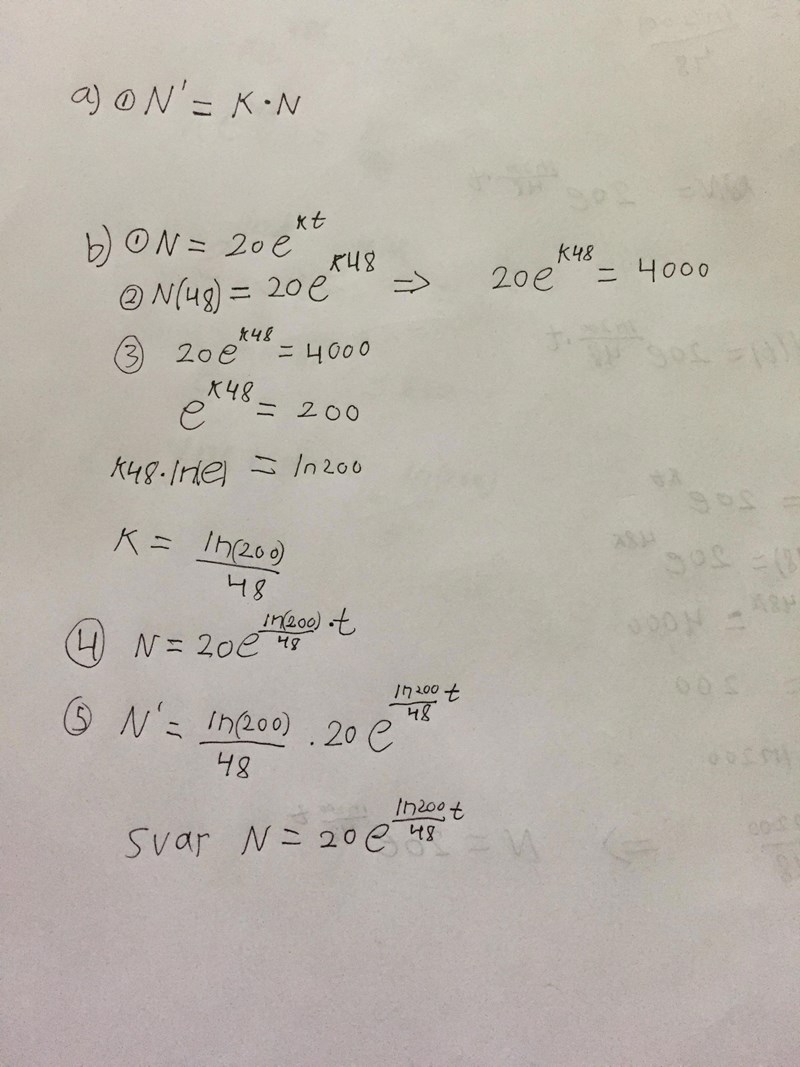 a) ① N' = K · N
b) ① N = 20e^{kt}
② N(48) = 20e^{K48} => 20e^{K48} = 4000
③ 20e^{K48} = 4000
e^{K48} = 200
K48 · ln(e) = ln200
K = \frac{ln(200)}{48}
④ N = 20e^{\frac{ln(200)}{48} · t}
⑤ N' = \frac{ln(200)}{48} · 20e^{\frac{ln200}{48}t}
Svar N = 20e^{\frac{ln200}{48}t}